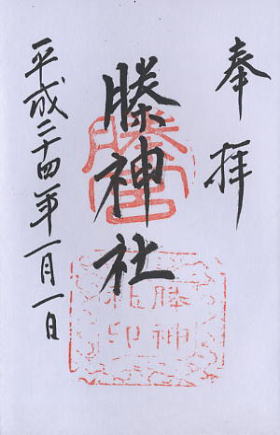 奉拝
榺神社
平成二十四年一月一日
榺神
社印